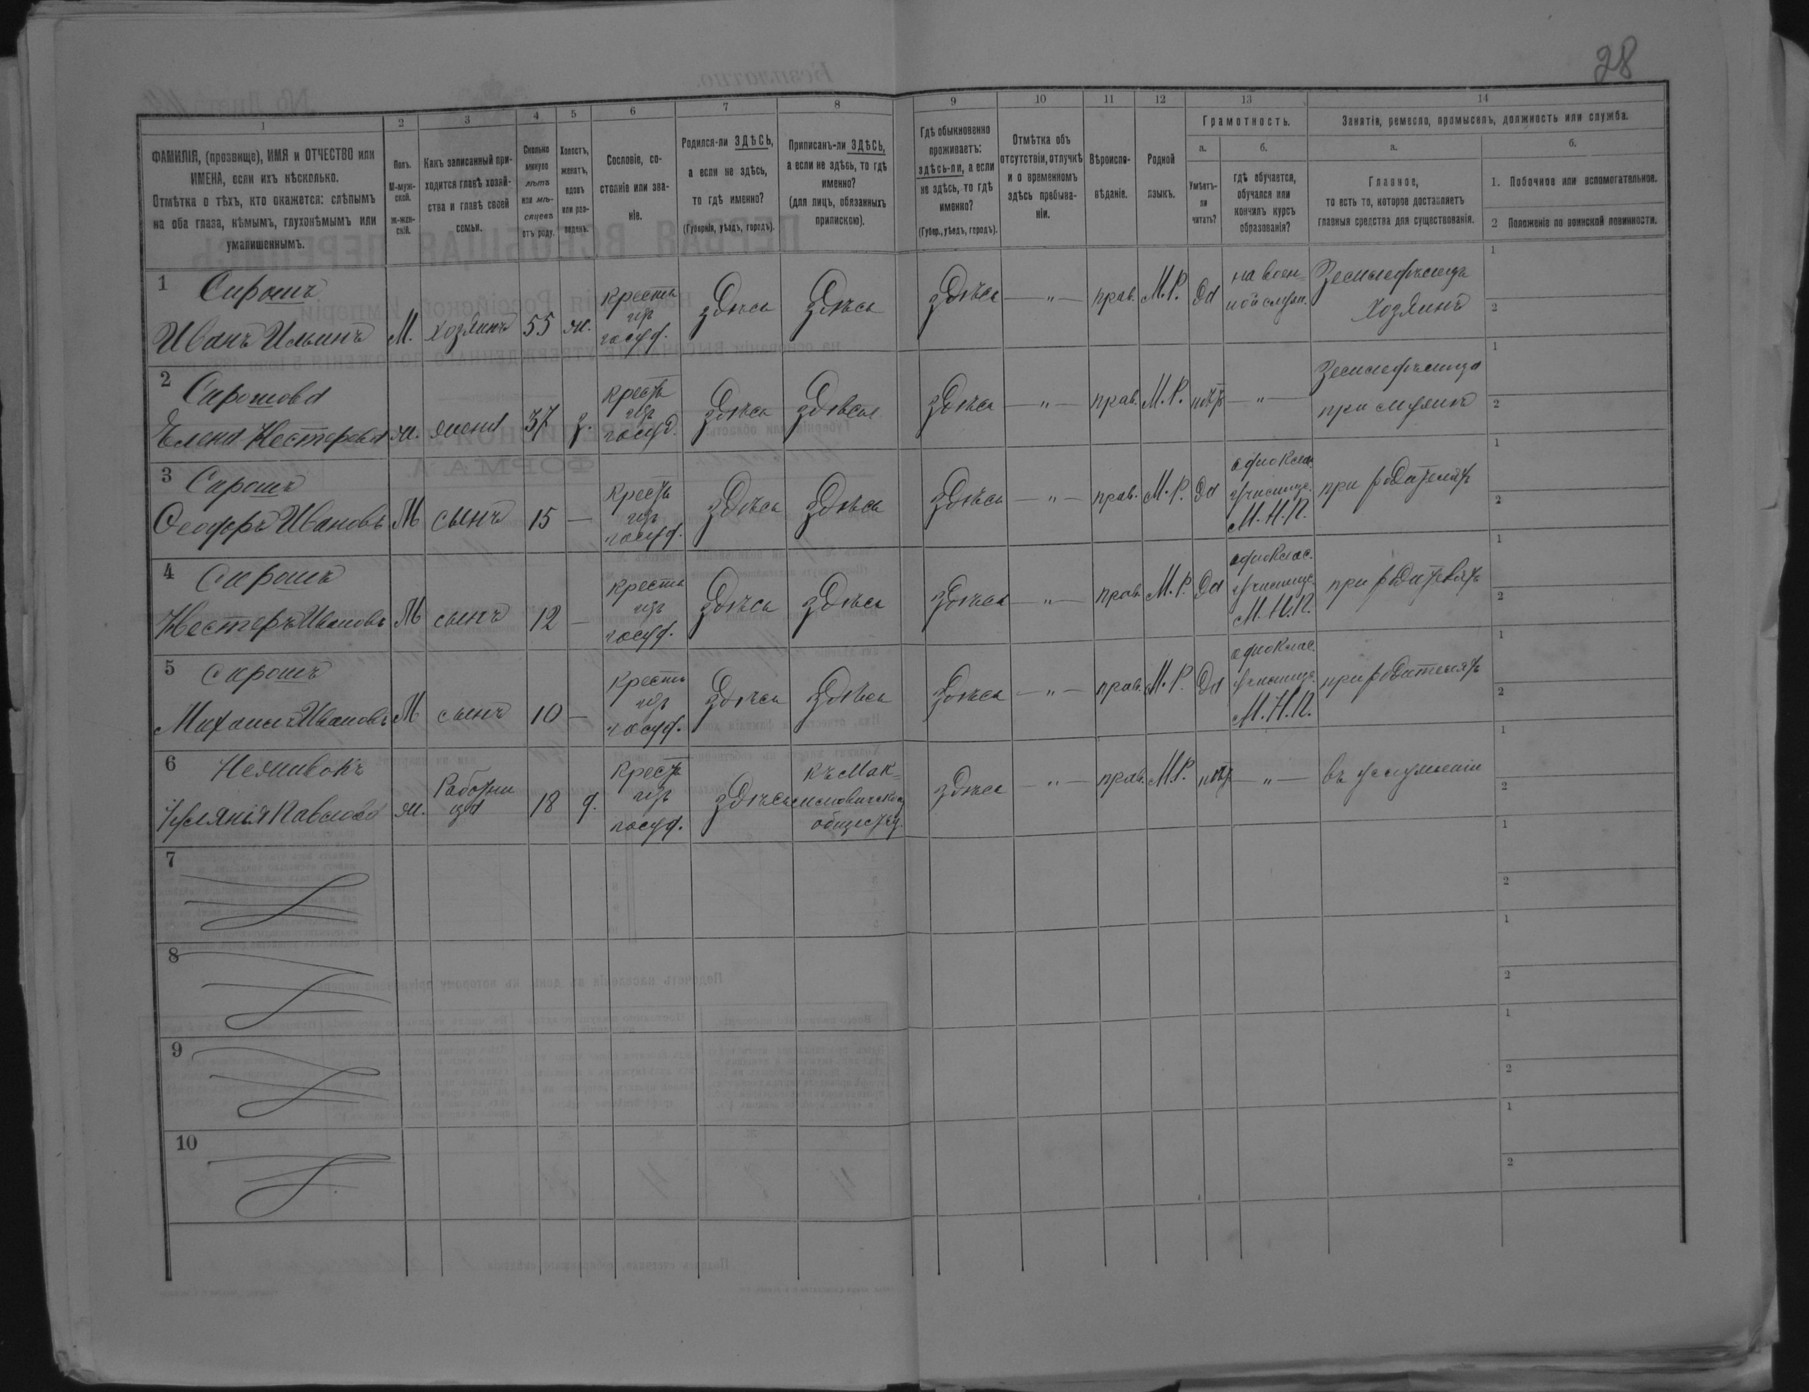 28
1
2
3
4
5
6
7
8
9
10
11
12
13
14
ФАМИЛІЯ, (прозвище), ИМЯ и ОТЧЕСТВО или
ИМЕНА, если ихъ нѣсколько.
Отмѣтка о тѣхъ, кто окажется: слѣпымъ
на оба глаза, нѣмымъ, глухонѣмымъ или
умалишеннымъ.
Полъ.
М-муж-
ской.
ж-жен-
скій.
Какъ записанный при-
ходится главѣ хозяй-
ства и главѣ своей
семьи.
Сколько
минуло
лѣтъ
или мѣ-
сяцевъ
отъ роду.
Холостъ,
женатъ,
вдовъ
или раз-
веденъ.
Сословіе, со-
стояніе или зва-
ніе.
Родился-ли ЗДѢСЬ,
а если не здѣсь,
то гдѣ именно?
(Губернія, уѣздъ, городъ).
Приписанъ-ли ЗДѢСЬ,
а если не здѣсь, то гдѣ
именно?
(для лицъ, обязанныхъ
припискою).
Гдѣ обыкновенно
проживаетъ:
здѣсь-ли, а если
не здѣсь, то гдѣ
именно?
(Губер., уѣздъ, городъ).
Отмѣтка объ
отсутствіи, отлучкѣ
и о временномъ
здѣсь пребыва-
ніи.
Вѣроиспо-
вѣданіе.
Родной
языкъ.
Грамотность.
а.
Умѣетъ-
ли
читать?
б.
гдѣ обучается,
обучался или
кончилъ курсъ
образованія?
Занятія, ремесло, промыселъ, должность или служба.
а.
Главное,
то есть то, которое доставляетъ
главныя средства для существованія.
б.
1. Побочное или вспомогательное.
2 Положеніе по воинской повинности.
1 Сирошъ
Иванъ Ильинъ М. хозяинъ 55 ж. крестья
изъ
госуд. здѣсь здѣсь здѣсь — „ — прав. М.Р. да на воен
ной служ. Земледѣлецъ
Хозяинъ
2 Сирошова
Елена Нестерова ж. жена 37 з. крест
изъ
госуд. здѣсь здѣсь здѣсь — „ — прав. М.Р. нѣтъ — „ — Земледѣлица
при мужѣ
3 Сирошъ
Ѳеодоръ Ивановъ М сынъ 15 — крест
изъ
госуд. здѣсь здѣсь здѣсь — „ — прав. М.Р. да однокласс.
училище
М.Н.П. при родителяхъ
4 Сирошъ
Несторъ Ивановъ М сынъ 12 — крестья
изъ
госуд. здѣсь здѣсь здѣсь — „ — прав. М.Р. да однокласс.
училище
М.Н.П. при родителяхъ
5 Сирошъ
Михаилъ Ивановъ М сынъ 10 — крестья
изъ
госуд. здѣсь здѣсь здѣсь — „ — прав. М.Р. да однокласс
училище
М.Н.П. при родителяхъ
6
Павлова ж. Работни
ца 18 д. крест
изъ
госуд. здѣсь къ Мак-
обществу здѣсь — „ — прав. М.Р. нѣтъ — „ — въ услуженіи
7
8
9
10